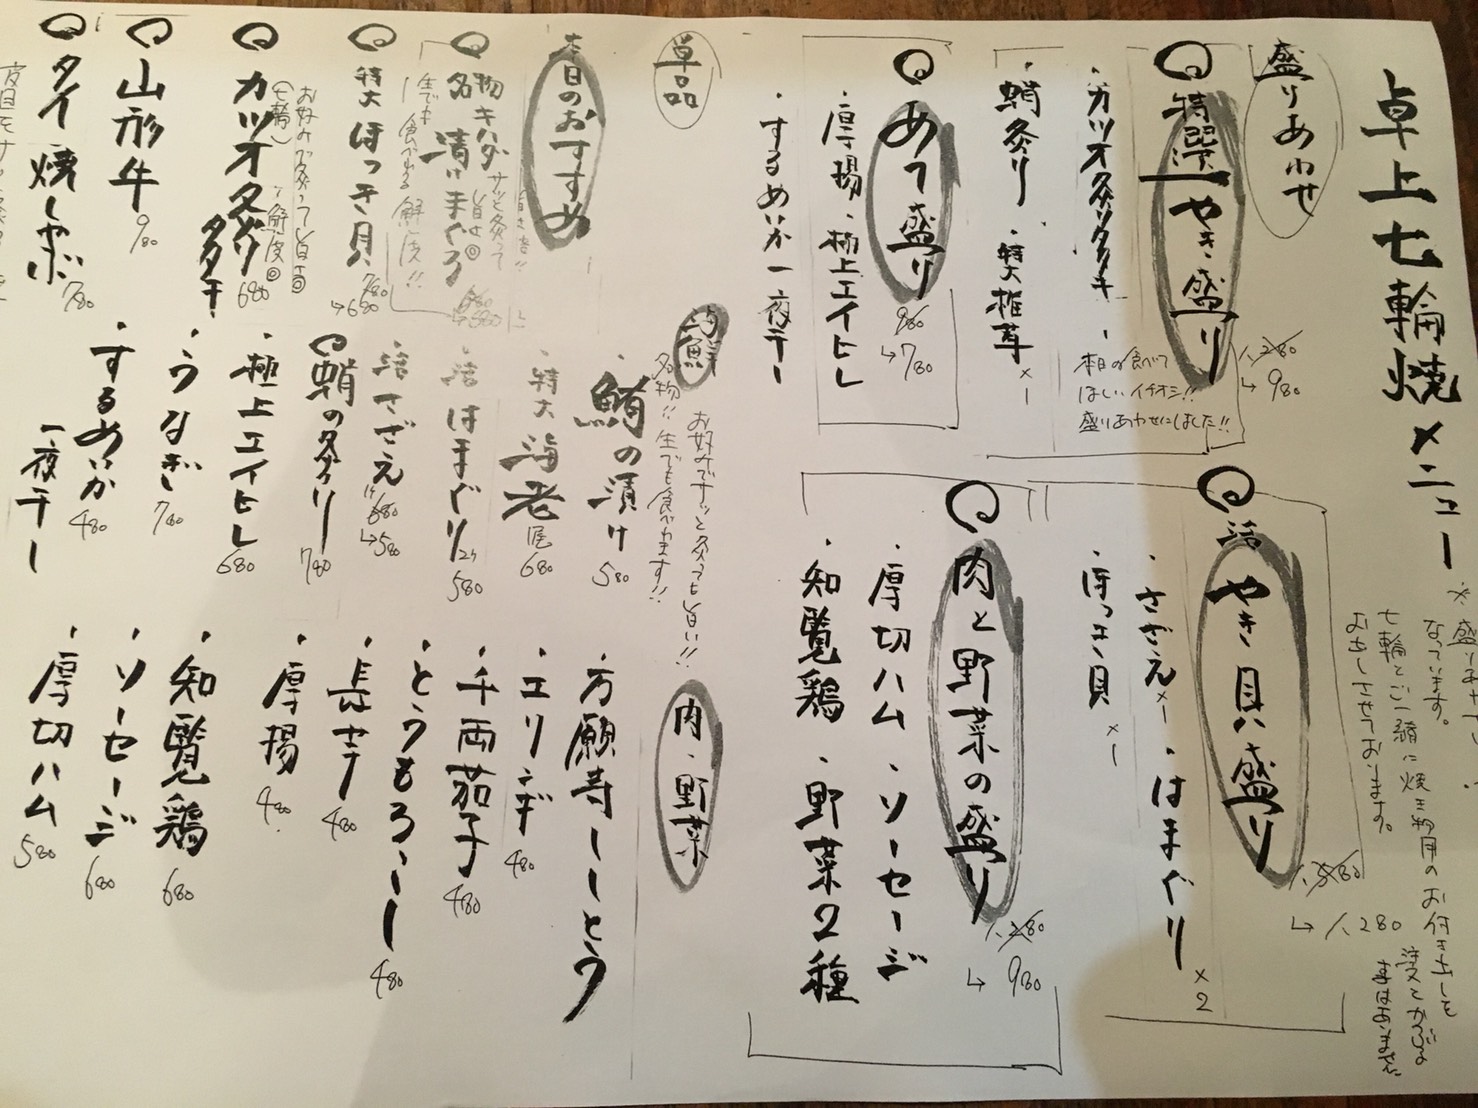 卓上七輪焼メニュー
なっています。
七輪とご一緒に焼き物用のお付き出しを
お出しさせております。
盛りあわせ
特選やき盛り
1,280
→980
・カツオ炙りタタキ
・蛸炙り
・特大椎茸×1
本日の食べて
ほしいイチオシ!!
盛りあわせにしました!!
活やき貝盛り
1,580
→1,280
・さざえ×1
・はまぐり×2
・ほっき貝×1
あて盛り
980
→780
・厚揚
・極上エイヒレ
・するめいか一夜干し
肉と野菜の盛り
1,280
→980
・厚切ハム
・ソーセージ
・知覧鶏
・野菜2種
単品
本日のおすすめ
名物キハダ漬けまぐろ
サッと炙って
旨せ◎
生でも食べれる鮮度!!
680
→580
特大ほっき貝
780
→680
カツオ炙りタタキ
680
お好みで炙って旨し◎
(七輪)
山形牛
980
タイ焼しゃぶ
780
海鮮
名物!!生でも食べれます!!
お好みでサッと炙っても旨い!!
・鮪の漬け
580
・特大海老
680
・活はまぐり
580
・活さざえ
680
→580
蛸の炙り
780
・極上エイヒレ
680
・うなぎ
780
・するめいか一夜干し
480
肉・野菜
・万願寺しーとう
・エリンギ
480
・千両茄子
480
・とうもろこし
480
・長芋
480
・厚揚
480
・知覧鶏
680
・ソーセージ
680
・厚切ハム
580